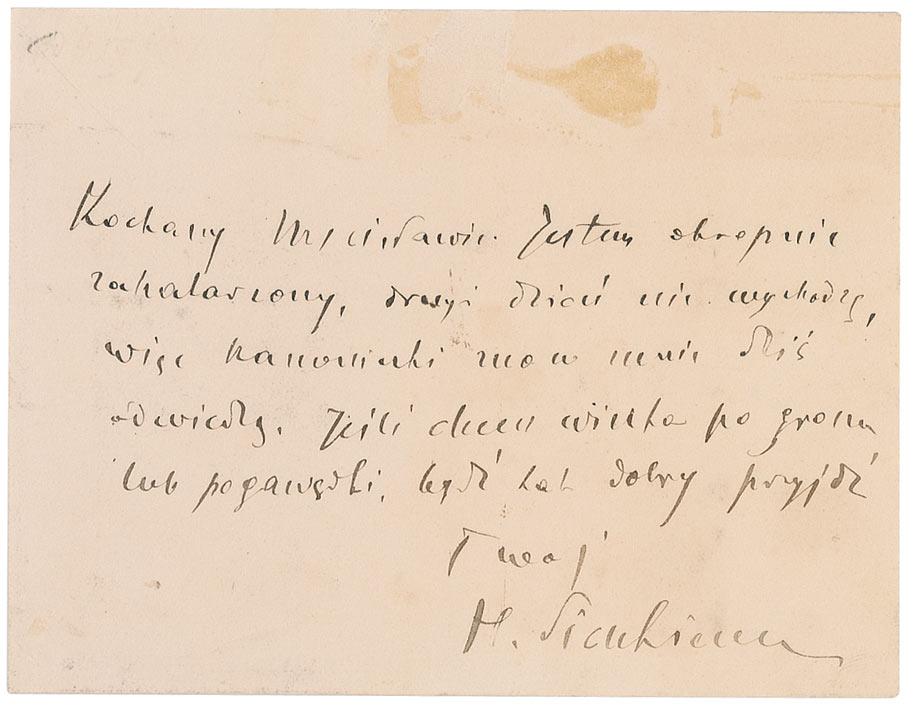 Kochany Mścisławie. Jestem okropnie
zakatarzony, drugi dzień nie wychodzę,
więc kanoniczki znow mnie dziś
odwiedzą. Jeśli chcesz winta po groszu
lub pogawędki, bądź tak dobry przyjdź
Twoj
H. Sienkiewicz